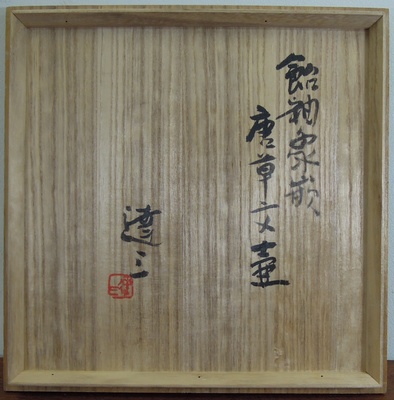 飴釉象嵌
唐草文壷
達三